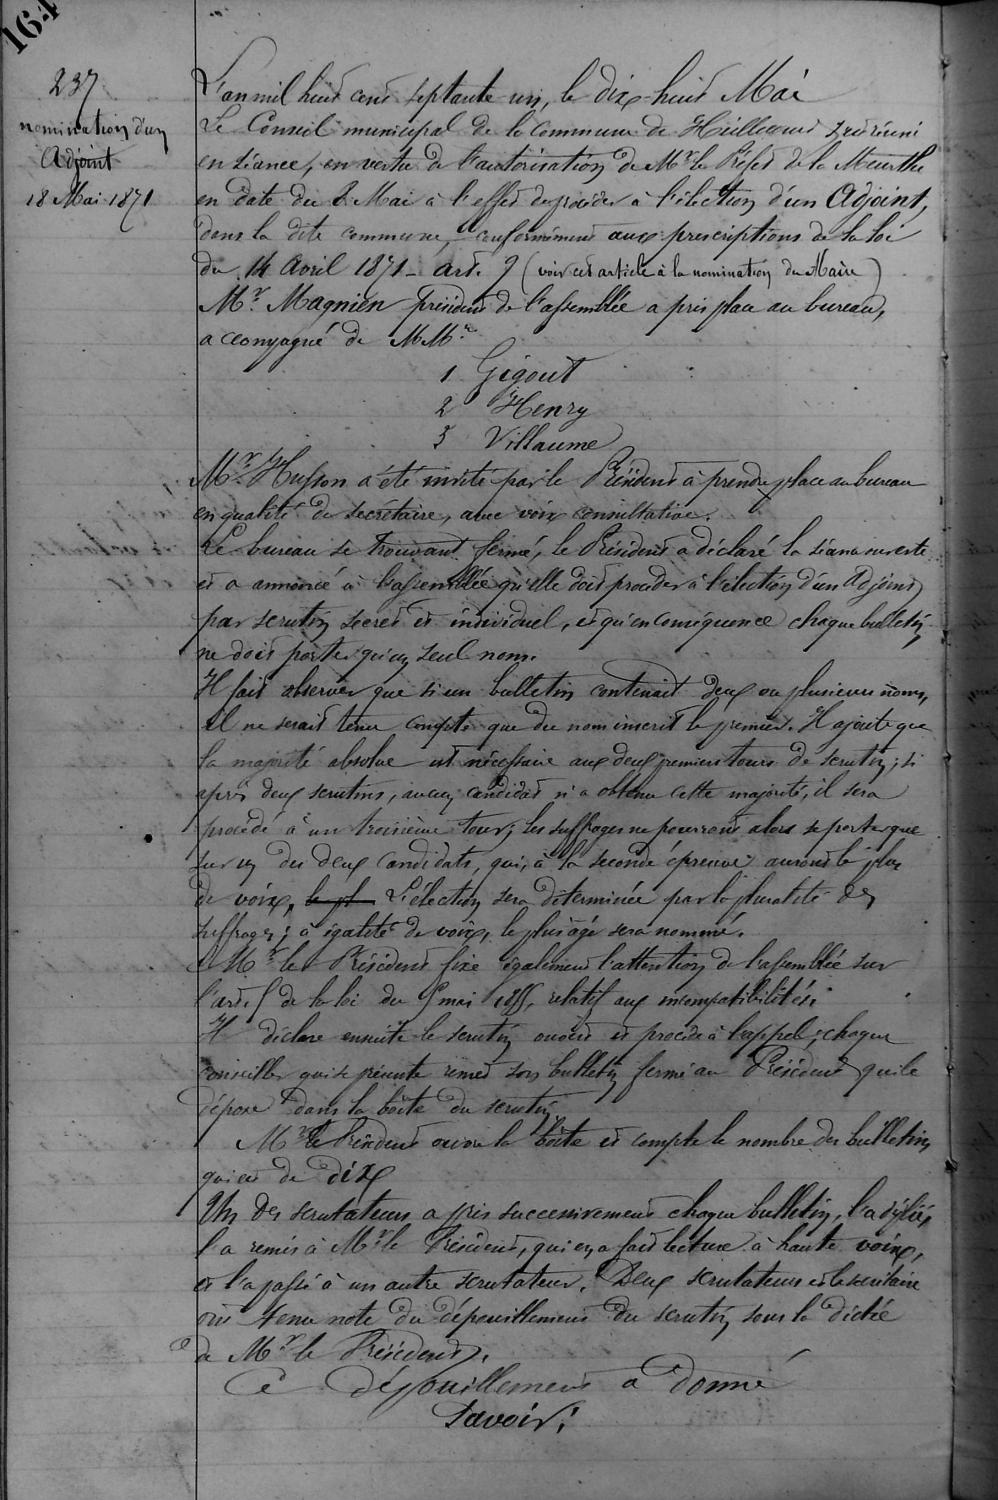 164
237
nomination d'un
Adjoint
18 Mai 1871
L'an mil huit cent septante un, le dix-huit Mai
Le Conseil municipal de la Commune de s'est réuni
en séance, en vertu de l'autorisation de Mr le Préfet de la Meurthe
en date du 8 Mai à l'effet de procéder à l'élection d'un Adjoint,
dans la dite commune, conformément aux prescriptions de la loi
du 14 Avril 1871 - art. 9 (voir cet article à la nomination du Maire)
Mr Magnien président de l'assemblée a pris place au bureau,
accompagné de MMrs
1 Gigout
2 Henry
3 Villaume
Mr Husson a été invité par le Président à prendre place au bureau
en qualité de secrétaire, avec voix consultative.
Le bureau se trouvant formé, le Président a déclaré la séance ouverte
et a annoncé à l'assemblée qu'elle doit procéder à l'élection d'un Adjoint
par scrutin secret et individuel, et qu'en conséquence chaque bulletin
ne doit porter qu'un seul nom.
Il fait observer que si un bulletin contenait deux ou plusieurs noms,
il ne serait tenu compte que du nom inscrit le premier. Il ajoute que
la majorité absolue est nécessaire aux deux premiers tours de scrutin; si
après deux scrutins, aucun candidat n'a obtenu cette majorité, il sera
procédé à un troisième tour; les suffrages ne pourront alors se porter que
sur un des deux candidats, qui, à la seconde épreuve auront le plus
de voix, le pl L'élection sera déterminée par la pluralité des
suffrages; à égalité de voix, le plus âgé sera nommé.
Mr le Président fixe également l'attention de l'assemblée sur
l'art. 5 de la loi du 5 mai 1855, relatif aux incompatibilités.
Il déclare ensuite le scrutin ouvert et procède à l'appel; chaque
conseiller qui se présente remet son bulletin fermé au Président qui le
dépose dans la boîte du scrutin.
Mr le Président ouvre la boîte et compte le nombre des bulletins
qui est de dix
Un des scrutateurs a pris successivement chaque bulletin, l'a déplié,
l'a remis à Mr le Président, qui en a fait lecture à haute voix,
et l'a passé à un autre scrutateur. Deux scrutateurs et le secrétaire
ont tenu note du dépouillement du scrutin sous la dictée
de Mr le Président.
Ce dépouillement a donné
Savoir: